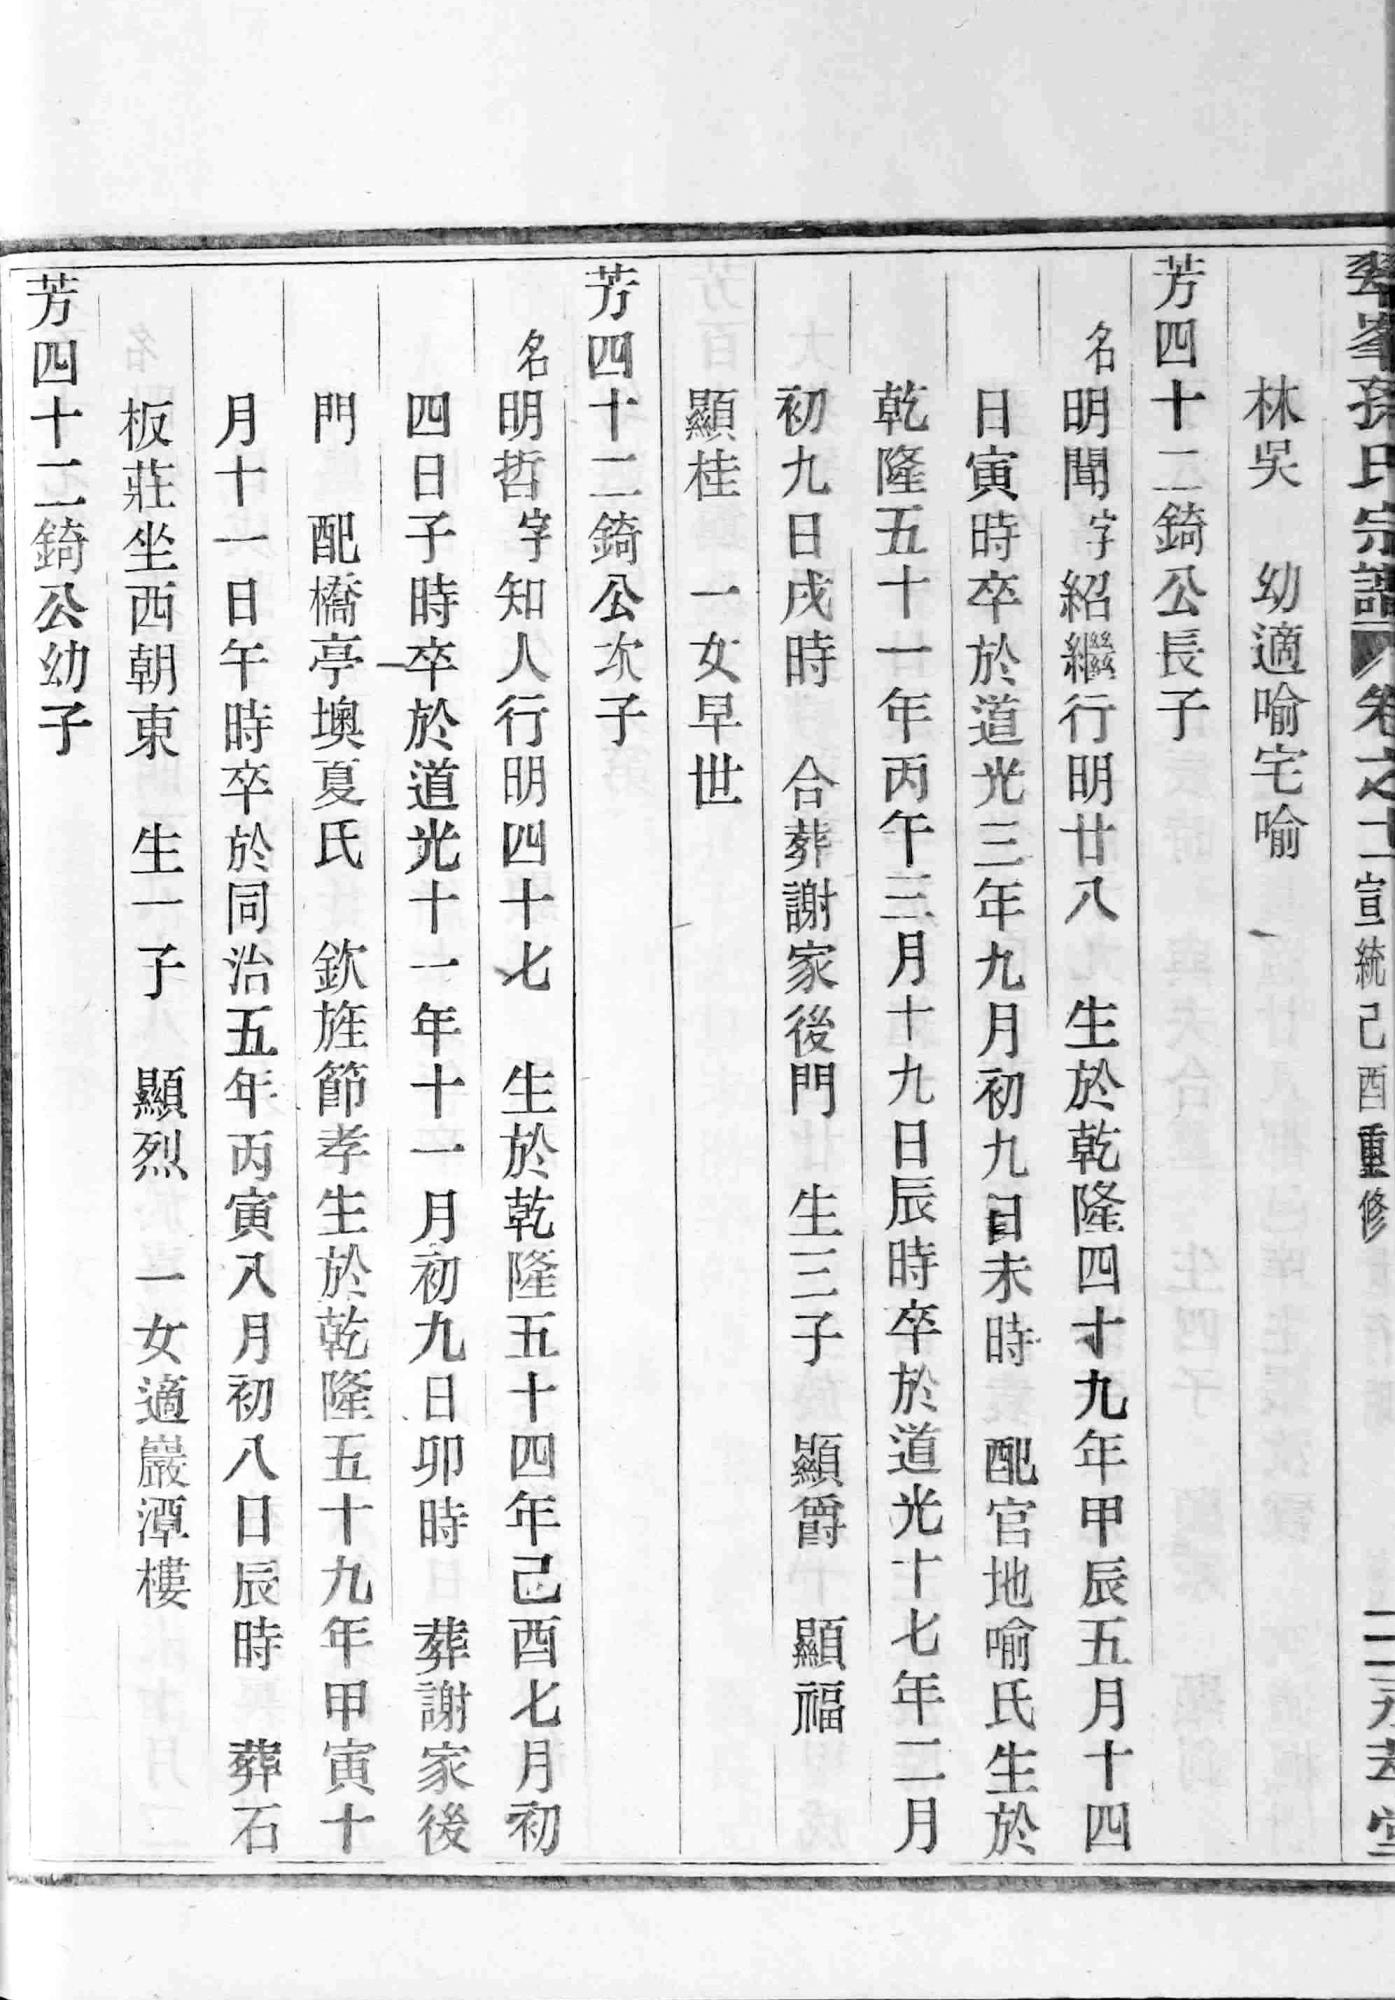 翠峯孫氏宗譜 卷之二 宣統己酉重修 二 永孝堂
林吳 幼適喻宅喻
芳四十二錡公長子
名明聞字紹繼行明廿八 生於乾隆四十九年甲辰五月十四
日寅時卒於道光三年九月初九日未時 配官地喻氏生於
乾隆五十一年丙午三月十九日辰時卒於道光十七年二月
初九日戌時 合葬謝家後門 生三子 顯爵 顯福
顯桂 一女早世
芳四十二錡公次子
名明哲字知人行明四十七 生於乾隆五十四年己酉七月初
四日子時卒於道光十一年十一月初九日卯時 葬謝家後
門 配橋亭墺夏氏 欽旌節孝生於乾隆五十九年甲寅十
月十一日午時卒於同治五年丙寅八月初八日辰時 葬石
板莊坐西朝東 生一子 顯烈 一女適巖潭樓
芳四十二錡公幼子